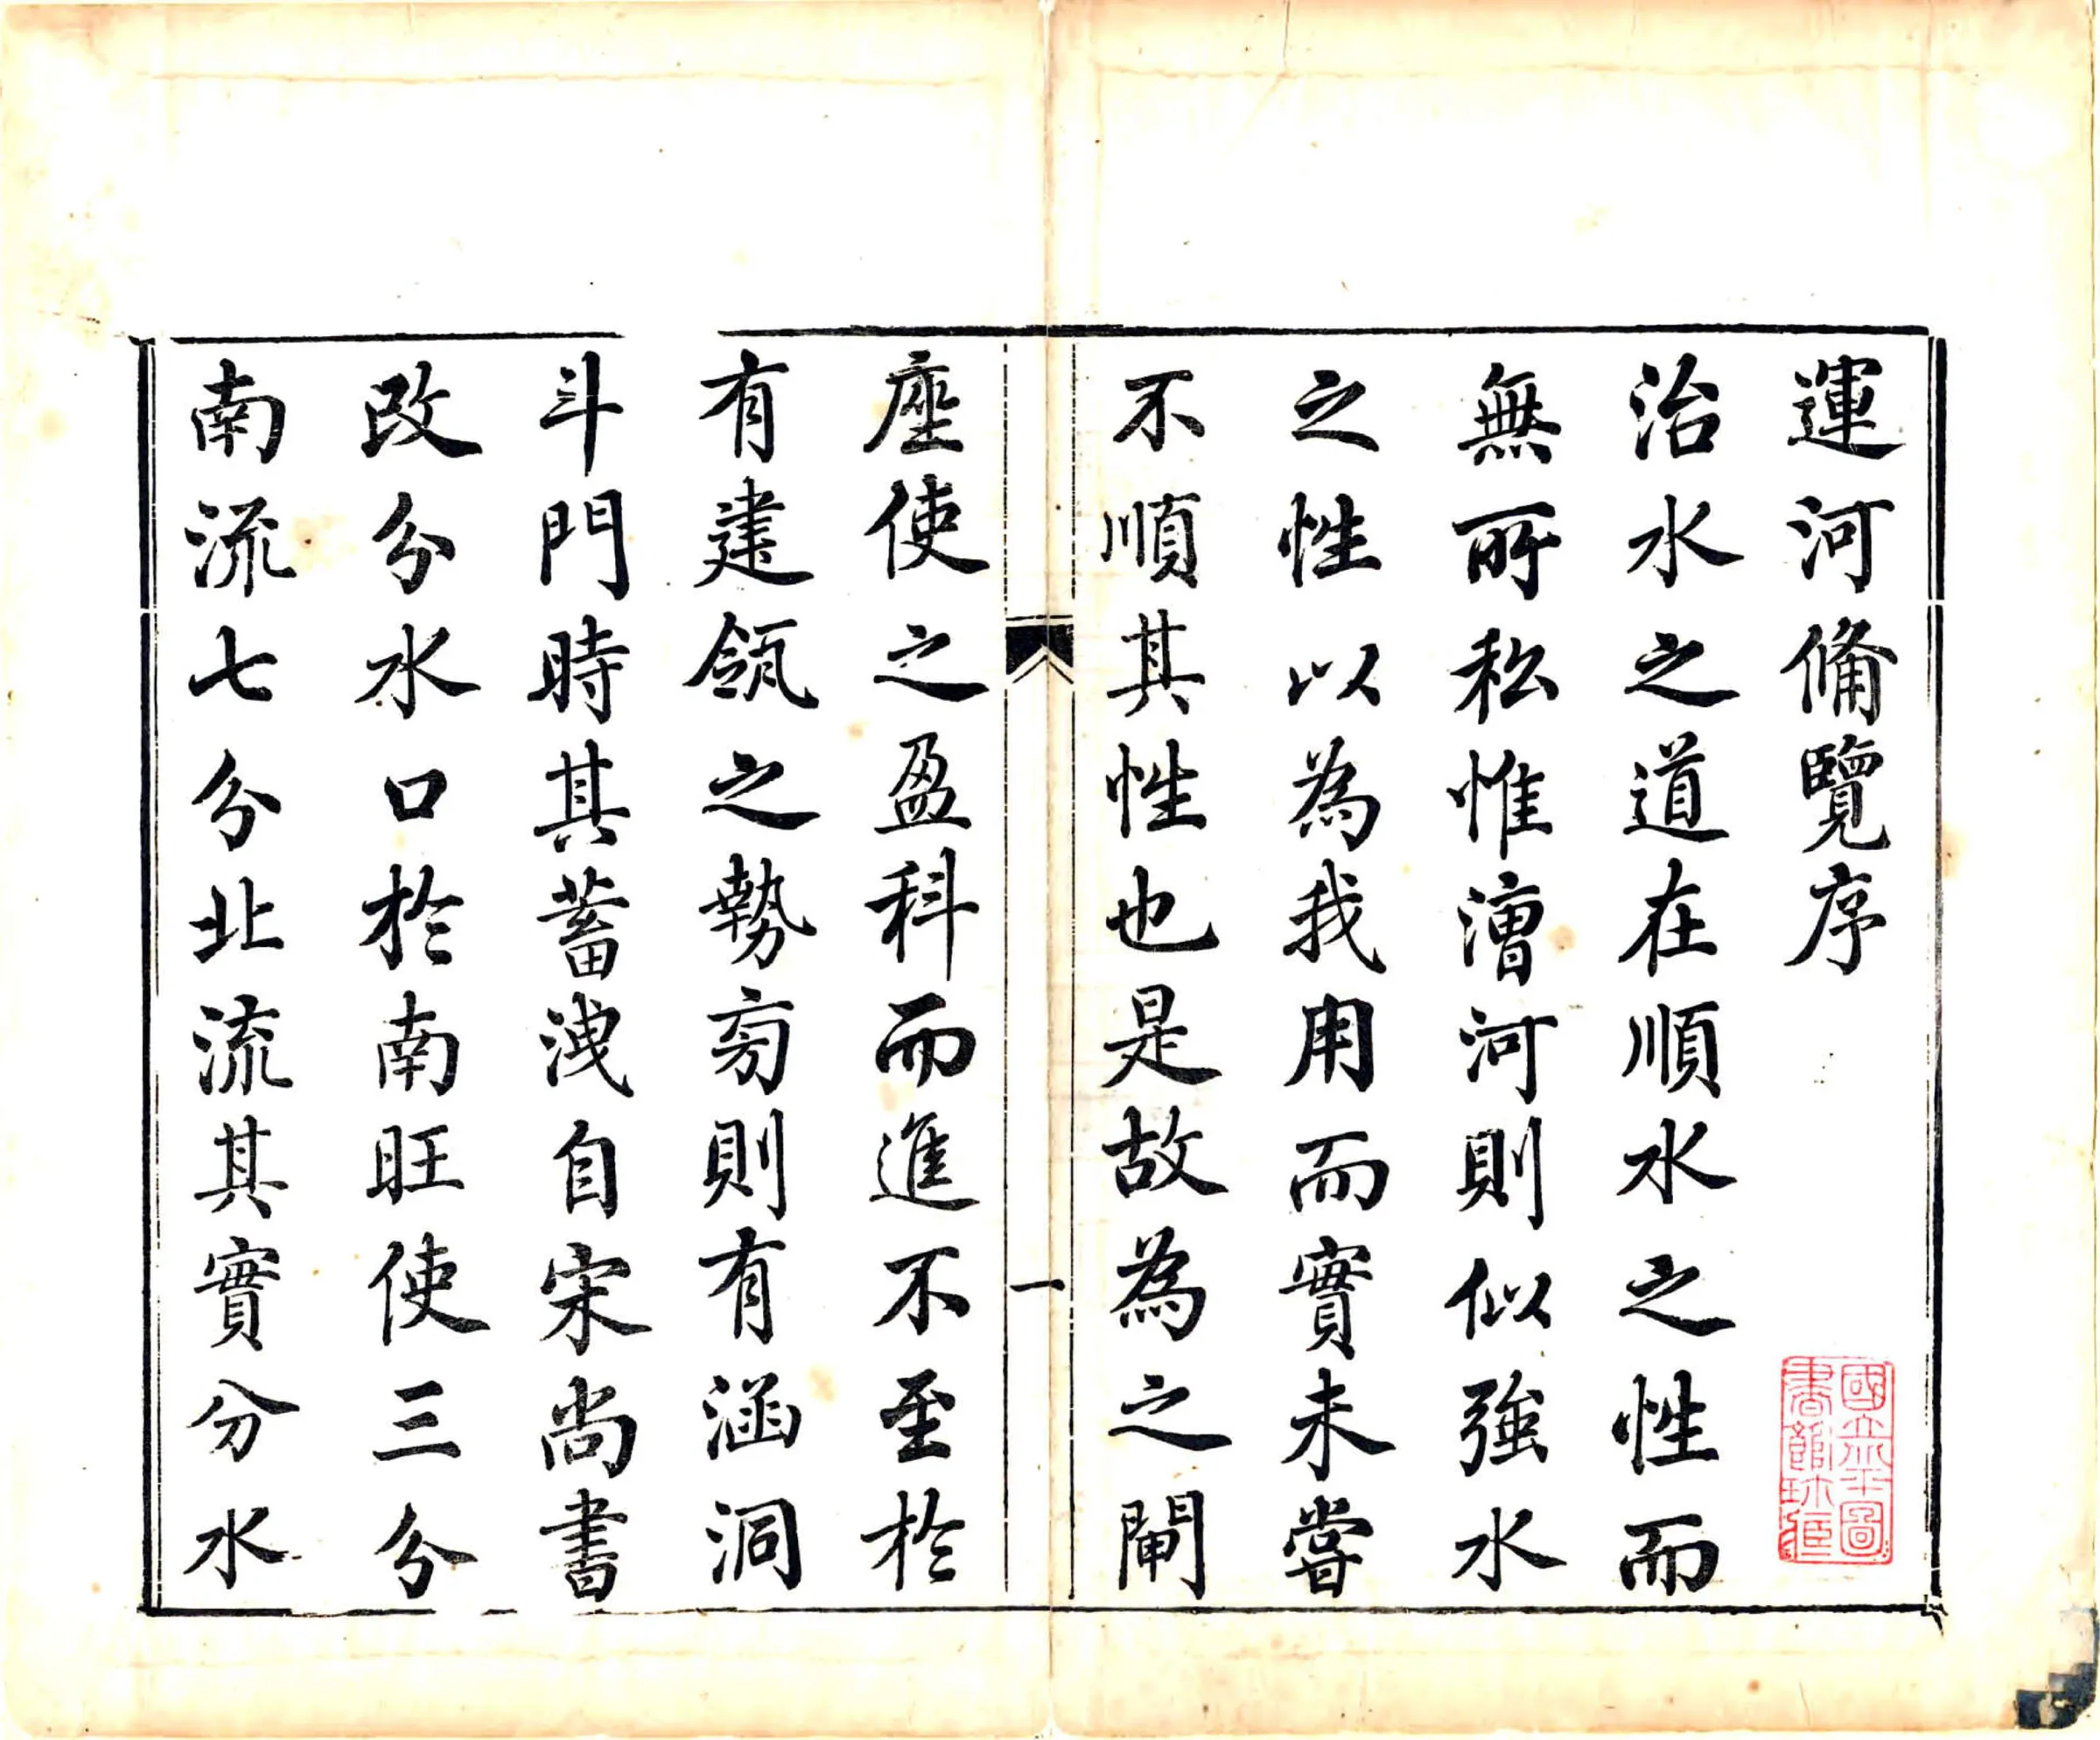 運河偹覽序
治水之道在順水之性而
無所私惟漕河則似強水
之性以為我用而實未嘗
不順其性也是故為之閘
一
座使之盈科而進不至於
有建瓴之勢旁則有涵洞
斗門時其蓄洩自宋尚書
改分水口於南旺使三分
南流七分北流其實分水
國立北平圖
書館珍藏